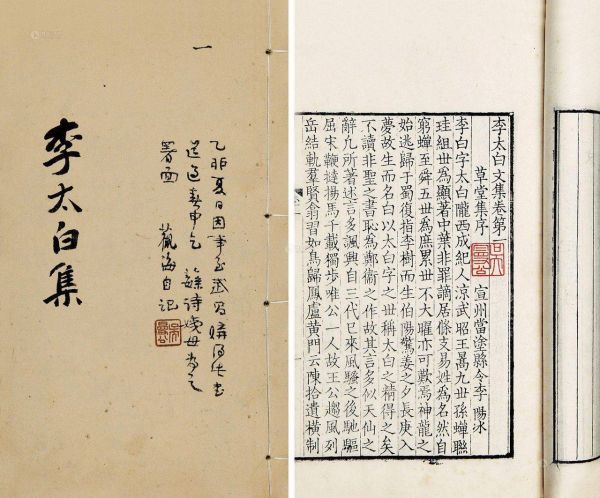 一
李太白集
署面
海自記
李太白文集卷第一
草堂集序 宣州當塗縣令李 陽冰
李白字太白隴西成紀人涼武昭王暠九世孫蟬聯
珪組世為顯著中葉非罪謫居條支易姓為名然自
窮蟬至舜五世為庶累世不大曜亦可歎焉神龍之
始逃歸于蜀復指李樹而生伯陽驚姜之夕長庚入
夢故生而名白以太白字之世稱太白之精得之矣
不讀非聖之書恥為鄭衛之作故其言多似天仙之
辭凡所著述言多諷興自三代已來風騷之後馳驅
屈宋鞭撻揚馬千載獨步唯公一人故王公趨風列
岳結軌羣賢翕習如鳥歸鳳盧黃門云陳拾遺橫制